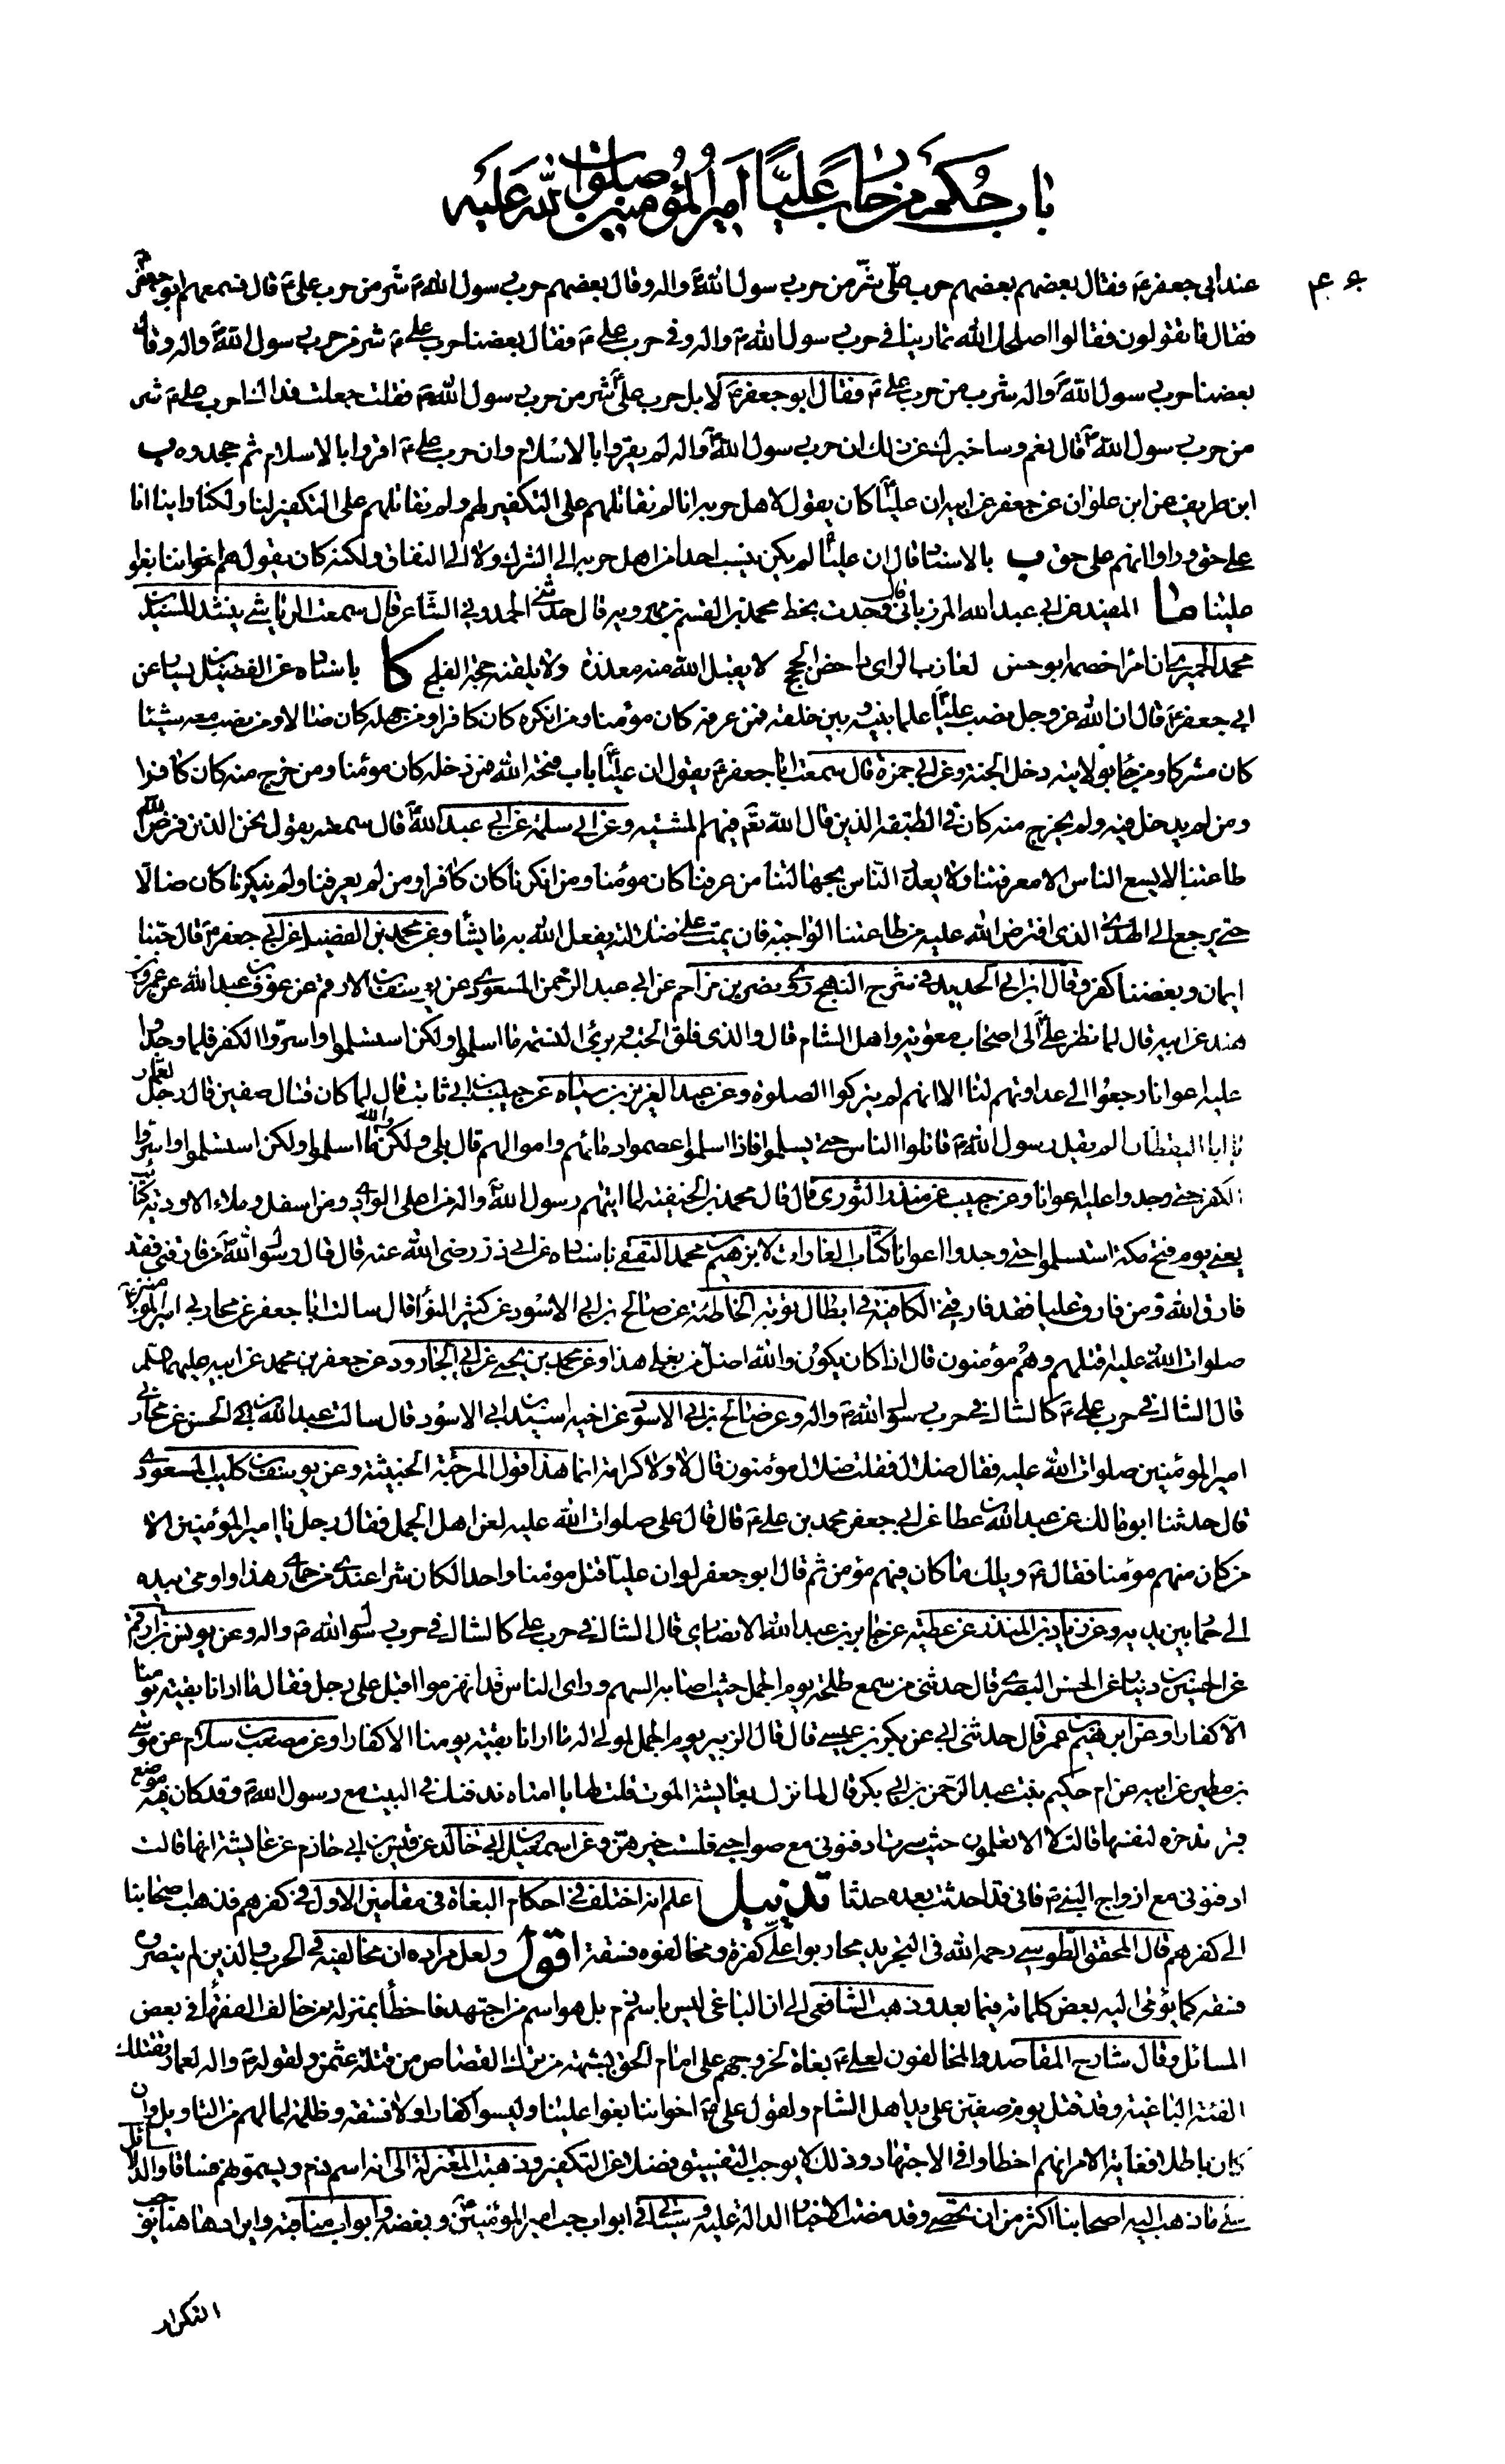 باب حكم من حارب عليا امير المؤمنين صلوات الله عليه
عند ابي جعفر ع فقال بعضهم بعضهم حرب علي شر من حرب رسول الله ص واله وقال بعضهم حرب رسول الله ص شر من حرب علي ع قال فسمعهم ابو جعفر ع
فقال ما تقولون فقالوا اصلحك الله تمارينا في حرب رسول الله ص واله وفي حرب علي ع فقال بعضنا حرب علي ع شر من حرب رسول الله ص واله وقال
بعضنا حرب رسول الله ص واله شر من حرب علي ع فقال ابو جعفر ع لا بل حرب علي ع شر من حرب رسول الله ص فقلت جعلت فداك احرب علي ع شر
من حرب رسول الله ص قال نعم وساخبرك عن ذلك ان حرب رسول الله ص واله لم يقروا بالاسلام وان حرب علي ع اقروا بالاسلام ثم جحدوه ب
ابن طريف عن ابن علوان عن جعفر عن ابيه ان عليا ع كان يقول لاهل حربه انا لم نقاتلهم على التكفير لهم ولم نقاتلهم على التكفير لنا ولكنا راينا انا
على حق وراوا انهم على حق ب بالاسناد قال ان عليا ع لم يكن ينسب احدا من اهل حربه الى الشرك ولا الى النفاق ولكنه كان يقول هم اخواننا بغوا
علينا ما المفيد عن ابي عبد الله المرزباني قال وجدت بخط محمد بن القسم بن مهرويه قال حدثني الحمدوني الشاعر قال سمعت الرياشي ينشد للسيد بن
محمد الحميري ان امرا خصمه ابو حسن لعازب الراي داحض الحجج لا يقبل الله منه معذرة ولا يلقنه حجة الفلج كا باسناده عن الفضيل بن يسار عن
ابي جعفر ع قال ان الله عز وجل نصب عليا ع علما بينه وبين خلقه فمن عرفه كان مؤمنا ومن انكره كان كافرا ومن جهله كان ضالا ومن نصب معه شيئا
كان مشركا ومن جاء بولايته دخل الجنة وعن ابي حمزة قال سمعت ابا جعفر ع يقول ان عليا ع باب فتحه الله من دخله كان مؤمنا ومن خرج منه كان كافرا
ومن لم يدخل فيه ولم يخرج منه كان في الطبقة الذين قال الله تع فيهم المشية وعن ابي سلمة عن ابي عبد الله ع قال سمعته يقول نحن الذين فرض الله
طاعتنا لا يسع الناس الا معرفتنا ولا يعذر الناس بجهالتنا من عرفنا كان مؤمنا ومن انكرنا كان كافرا ومن لم يعرفنا ولم ينكرنا كان ضالا
حتى يرجع الى الهدى الذي افترض الله عليه من طاعتنا الواجبة فان يمت على ضلالته يفعل الله به ما يشاء وعن محمد بن الفضيل عن ابي جعفر ع قال حبنا
ايمان وبغضنا كفر وقال ابن ابي الحديد في شرح النهج روى نصر بن مزاحم عن ابي عبد الرحمن المسعودي عن يوسف بن الارقم عن عوف بن عبد الله عن عمرو بن
هند عن ابيه قال لما نظر علي ع الى اصحاب معوية واهل الشام قال والذي فلق الحبة وبرئ النسمة ما اسلموا ولكن استسلموا واسروا الكفر فلما وجدوا
عليه اعوانا رجعوا الى عداوتهم لنا الا انهم لم يتركوا الصلوة وعن عبد العزيز بن سياه عن حبيب بن ابي ثابت قال لما كان قتال صفين قال رجل لعمار
يا ابا اليقظان الم يقل رسول الله ص قاتلوا الناس حتى يسلموا فاذا اسلموا عصموا دمائهم واموالهم قال بلى ولكن والله ما اسلموا ولكن استسلموا واسروا
الكفر حتى وجدوا عليه اعوانا وعن حبيب عن منذر الثوري قال قال محمد بن الحنفية لما اتيهم رسول الله ص واله من اعلى الوادي ومن اسفله وملاء الاودية كتائب
يعني يوم فتح مكة استسلموا حتى وجدوا اعوانا كتاب الغارات لابرهيم بن محمد الثقفي باسناده عن ابي ذر رضي الله عنه قال قال رسول الله ص من فارقني فقد
فارق الله ومن فارق عليا فقد فارقني الكافية في ابطال توبة الخاطئة عن صالح بن ابي الاسود عن كثير النوا قال سالت ابا جعفر عن محاربي امير المؤمنين
صلوات الله عليه قتلهم وهم مؤمنون قال اذا كان يكون والله اضل من بغلي هذا وعن محمد بن يحيى عن ابي الجارود عن جعفر بن محمد عن ابيه عليهما السلم
قال الشاك في حرب علي ع كالشاك في حرب رسول الله ص واله وعن صالح بن ابي الاسود عن اخيه اسيد بن ابي الاسود قال سالت عبد الله بن الحسن عن محاربي
امير المؤمنين صلوات الله عليه فقال ضلال فقلت ضلال مؤمنون قال لا ولا كرامة انما هذا قول المرجئة الخبيثة وعن يوسف بن كليب المسعودي
قال حدثنا ابو مالك عن عبد الله بن عطا عن ابي جعفر محمد بن علي ع قال قال علي صلوات الله عليه لعن اهل الجمل فقال رجل يا امير المؤمنين الا
من كان منهم مؤمنا فقال ع ويلك ما كان فيهم مؤمن ثم قال ابو جعفر لو ان عليا قتل مؤمنا واحدا لكان شرا عندي من حماري هذا واومى بيده
الى حمار بين يديه وعن زياد بن المنذر عن عطية عن جابر بن عبد الله الانصاري قال الشاك في حرب علي كالشاك في حرب رسول الله ص واله وعن يونس بن ارقم
عن الحسين بن دينار عن الحسن البصري قال حدثني من سمع طلحة يوم الجمل حيث اصابه السهم وراى الناس قد انهزموا اقبل على رجل فقال ما ارانا بقية يومنا
الا كفارا وعن ابرهيم بن عمر قال حدثني ابي عن بكر بن عيسى قال قال الزبير يوم الجمل لمولى له ما ارانا بقية يومنا الا كفارا وعن مصعب بن سلام عن موسى
بن مطير عن ابيه عن ام حكيم بنت عبد الرحمن بن ابي بكر قال لما نزل بعايشة الموت قلت لها يا امتاه ندفنك في البيت مع رسول الله ص وقد كان فيه موضع
قبر تدخره لنفسها قالت لا الا تعلمون حيث سرت ادفنوني مع صواحبي فلست خيرهن وعن اسمعيل بن ابي خالد عن قيس بن ابي حازم عن عايشة انها قالت
ادفنوني مع ازواج النبي ص فاني قد احدثت بعده حدثا تذييل اعلم انه اختلف في احكام البغاة في مقامين الاول في كفرهم فذهب اصحابنا
الى كفرهم قال المحقق الطوسي رحمه الله في التجريد محاربوا علي كفرة ومخالفوه فسقة اقول ولعل مراده ان مخالفيه في الحرب والذين لم ينصروه
فسقة كما يؤمي اليه بعض كلماته فيما بعد وذهب الشافعي الى ان الباغي ليس باسم ذم بل هو اسم من اجتهد فاخطأ بمنزلة من خالف الفقهاء في بعض
المسائل وقال شارح المقاصد والمخالفون لعلي ع بغاة لخروجهم على امام الحق بشبهة من ترك القصاص من قتلة عثمن ولقوله ص واله لعمار تقتلك
الفئة الباغية وقد قتل يوم صفين على يد اهل الشام ولقول علي ع اخواننا بغوا علينا وليسوا كفارا ولا فسقة وظلمة لما لهم من التاويل وان
كان باطلا فغاية الامر انهم اخطاوا في الاجتهاد وذلك لا يوجب التفسيق فضلا عن التكفير وذهبت المعتزلة الى انه اسم ذم ويسمونهم فساقا والدلائل
على ما ذهب اليه اصحابنا اكثر من ان تحصى وقد مضت الاخبار الدالة عليه وسياتي في ابواب حب امير المؤمنين ع وبغضه وابواب مناقبه وايرادها هنا يوجب
التكرار